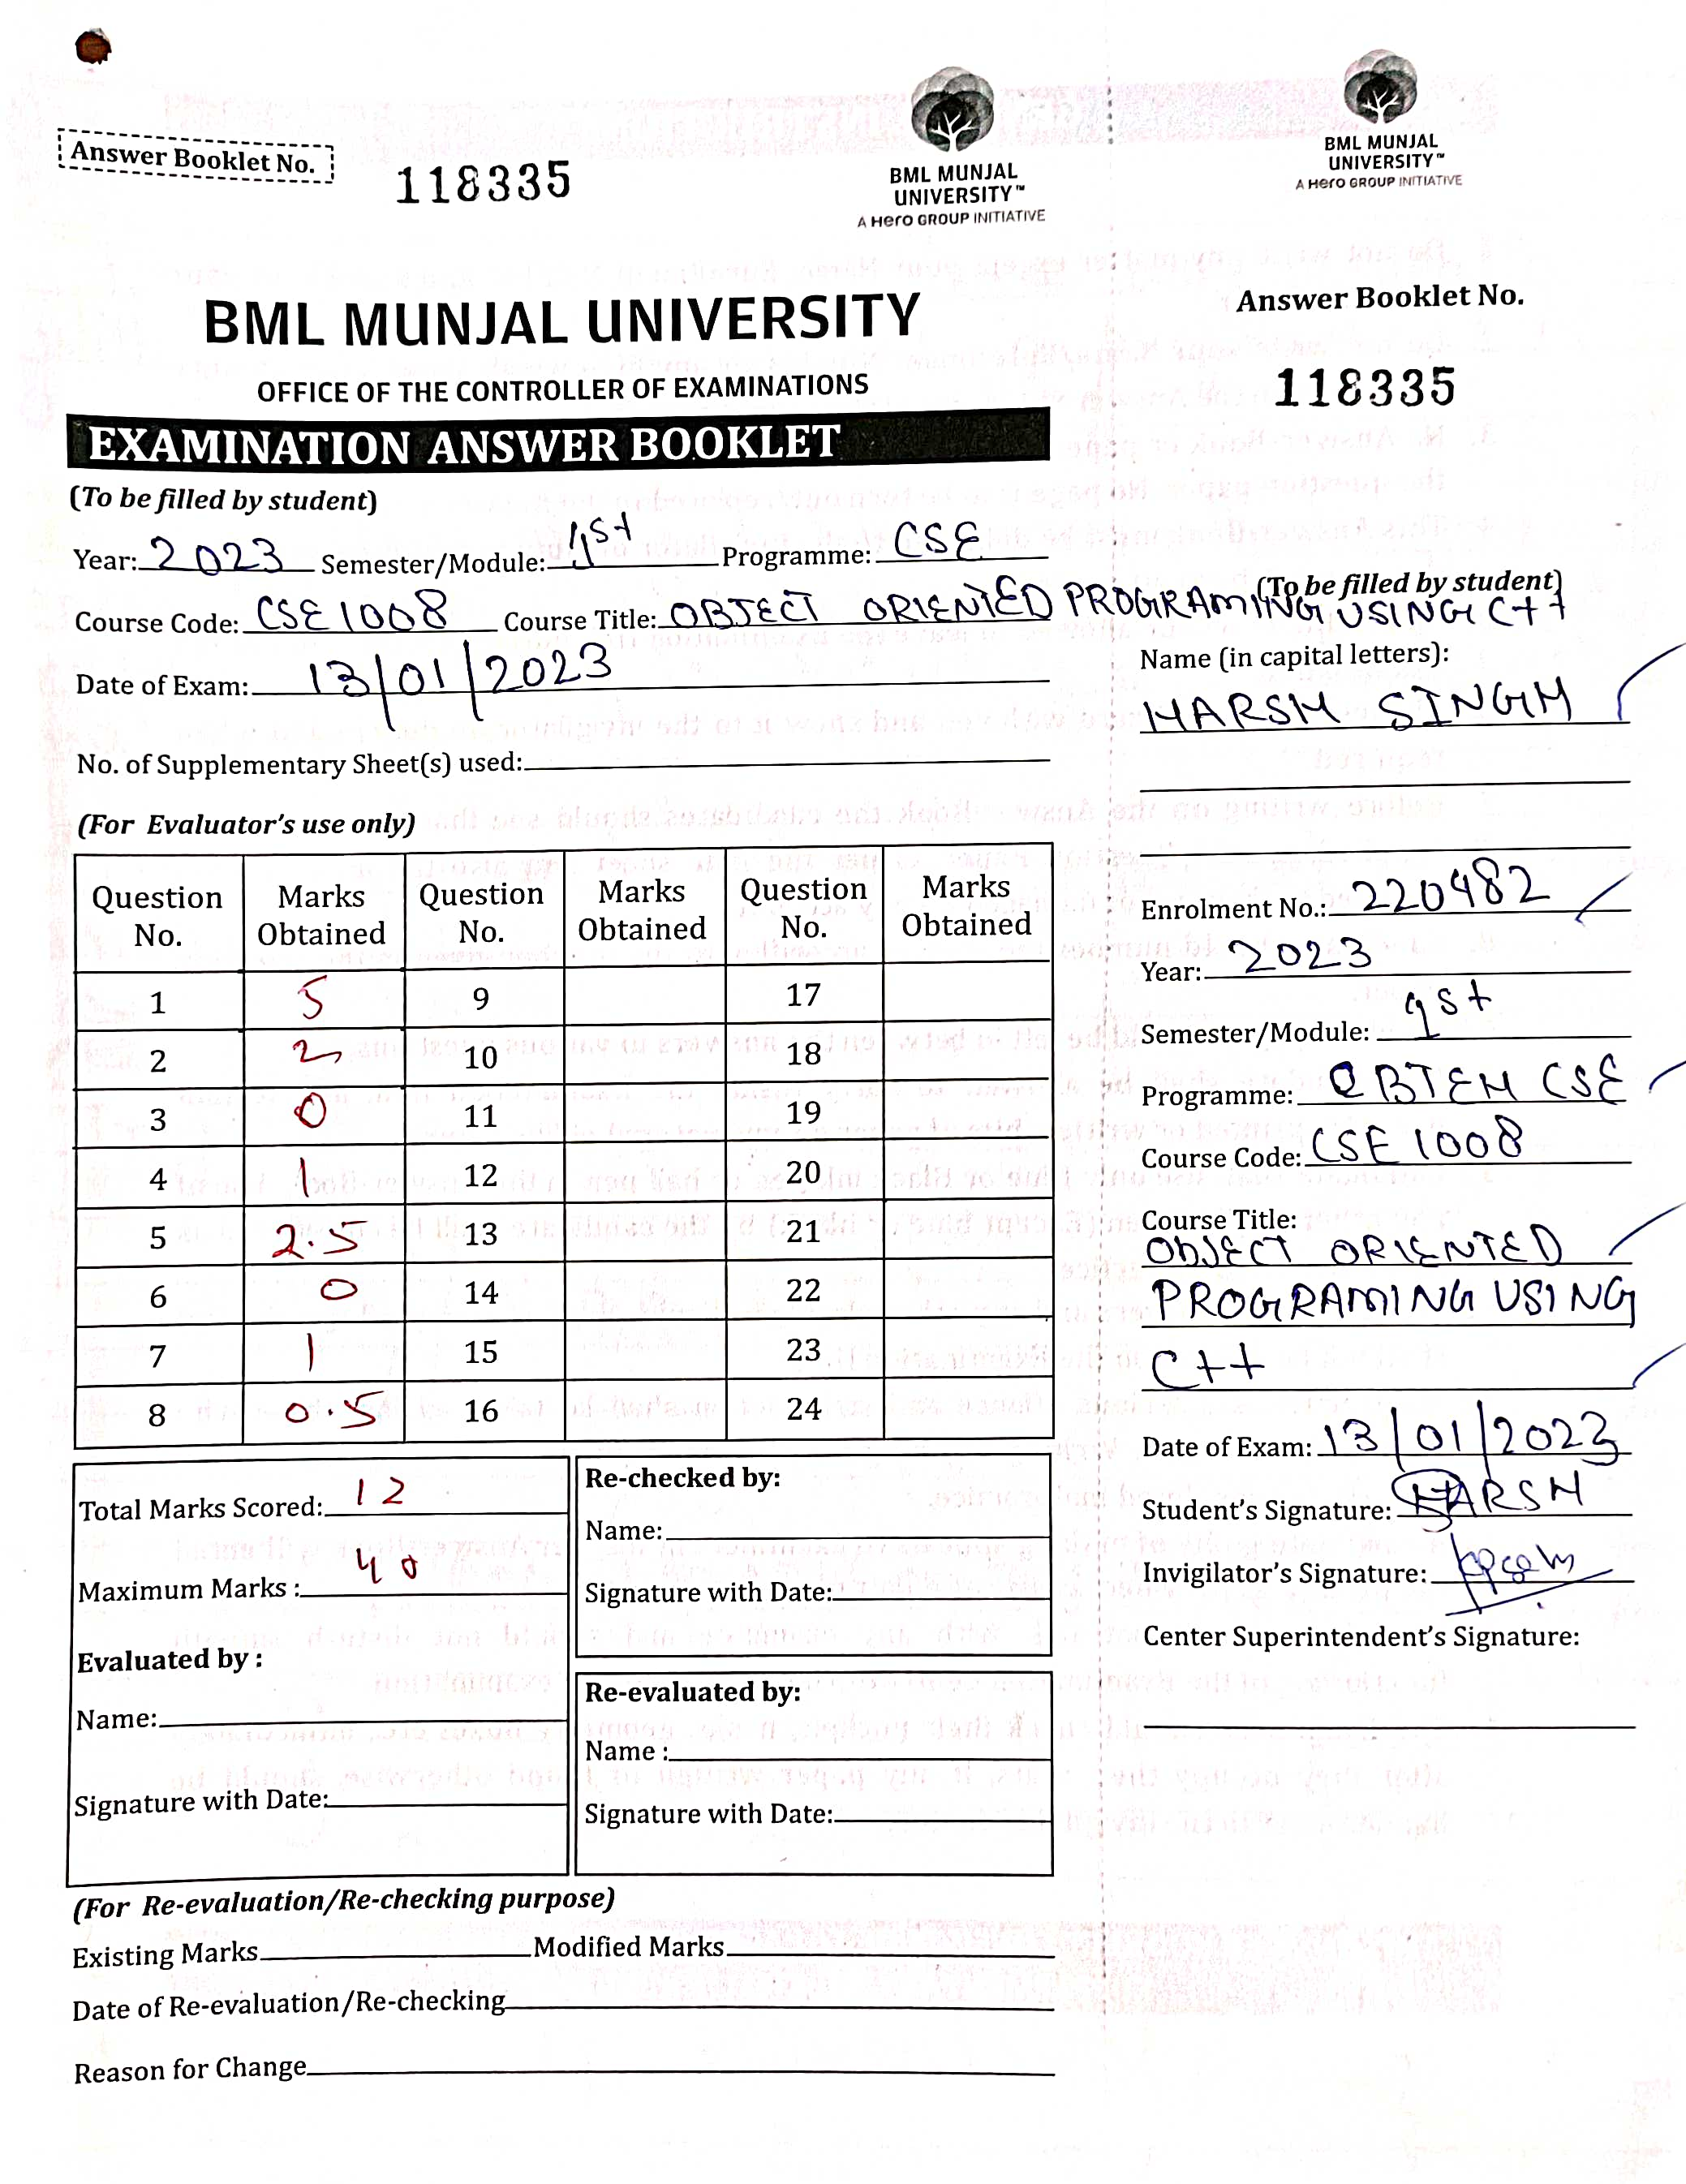 Answer Booklet No.
118335
BML MUNJAL
UNIVERSITY™
A Hero GROUP INITIATIVE
BML MUNJAL UNIVERSITY
OFFICE OF THE CONTROLLER OF EXAMINATIONS
EXAMINATION ANSWER BOOKLET
(To be filled by student)
Year: 2023 Semester/Module: 1st Programme: CSE
Course Code: CSE1008 Course Title: OBJECT ORIENTED PROGRAMING USING C++
Date of Exam: 13/01/2023
No. of Supplementary Sheet(s) used:
(For Evaluator's use only)
Question No. Marks Obtained Question No. Marks Obtained Question No. Marks Obtained
1 5 9 17
2 2 10 18
3 0 11 19
4 1 12 20
5 2.5 13 21
6 0 14 22
7 1 15 23
8 0.5 16 24
Total Marks Scored: 12
Maximum Marks : 40
Evaluated by :
Name:
Signature with Date:
Re-checked by:
Name:
Signature with Date:
Re-evaluated by:
Name :
Signature with Date:
(For Re-evaluation/Re-checking purpose)
Existing Marks Modified Marks
Date of Re-evaluation/Re-checking
Reason for Change
BML MUNJAL
UNIVERSITY™
A Hero GROUP INITIATIVE
Answer Booklet No.
118335
(To be filled by student)
Name (in capital letters):
HARSH SINGH
Enrolment No.: 220482
Year: 2023
Semester/Module: 1st
Programme: BTEH CSE
Course Code: CSE 1008
Course Title:
OBJECT ORIENTED
PROGRAMING USING
C++
Date of Exam: 13/01/2023
Student's Signature: HARSH
Invigilator's Signature:
Center Superintendent's Signature: